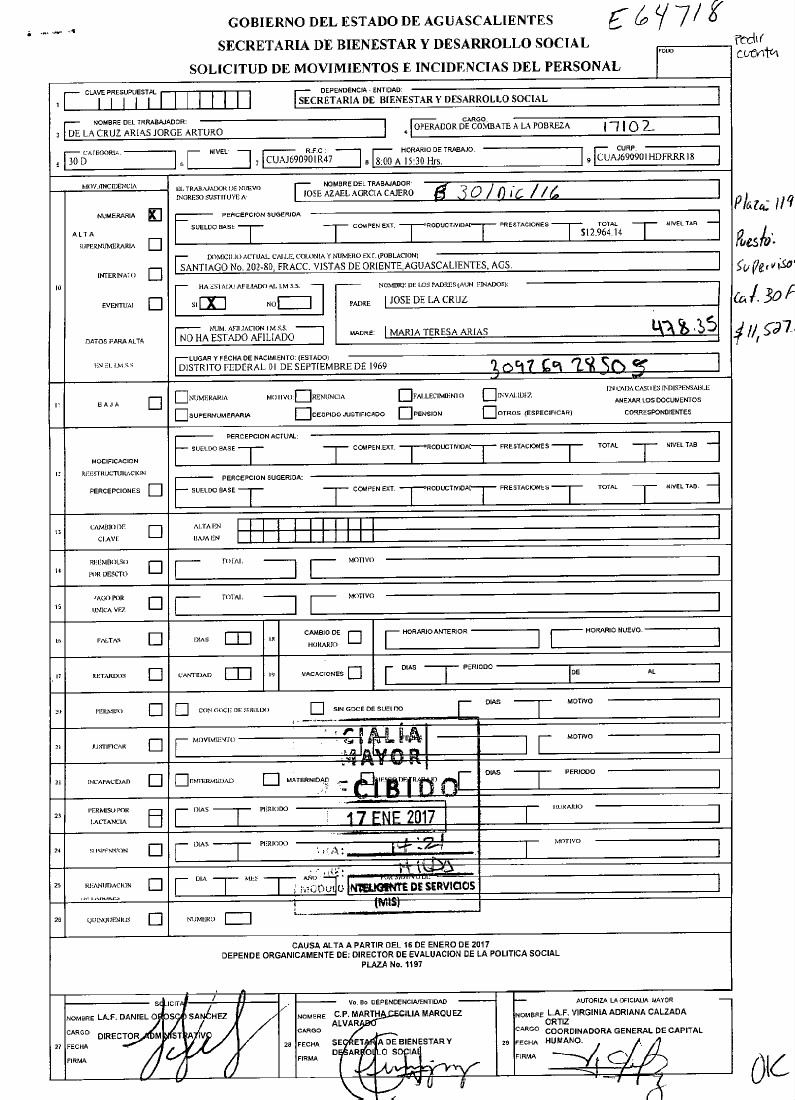 GOBIERNO DEL ESTADO DE AGUASCALIENTES
E64718
SECRETARIA DE BIENESTAR Y DESARROLLO SOCIAL
SOLICITUD DE MOVIMIENTOS E INCIDENCIAS DEL PERSONAL
FOLIO
Pedir
cuenta
CLAVE PRESUPUESTAL
DEPENDENCIA - ENTIDAD:
1
SECRETARIA DE BIENESTAR Y DESARROLLO SOCIAL
NOMBRE DEL TRRABAJADOR:
CARGO
3 DE LA CRUZ ARIAS JORGE ARTURO
4 OPERADOR DE COMBATE A LA POBREZA 17102
CATEGORIA. NIVEL: R.F.C.: HORARIO DE TRABAJO. CURP.
5 30 D 6 7 CUAJ690901R47 8 8:00 A 15:30 Hrs. 9 CUAJ690901HDFRRR18
MOV./INCIDENCIA
EL TRABAJADOR DE NUEVO
INGRESO SUSTITUYE A:
NOMBRE DEL TRABAJADOR:
JOSE AZAEL AGRCIA CAJERO 30/Dic/16
NUMERARIA X
PERCEPCION SUGERIDA
SUELDO BASE COMPEN EXT. PRODUCTIVIDA PRESTACIONES TOTAL NIVEL TAB
$12,964.14
Plaza: 119
ALTA
SUPERNUMERARIA
Puesto:
DOMICILIO ACTUAL. CALLE, COLONIA Y NUMERO EXT. (POBLACION)
SANTIAGO No. 202-80, FRACC. VISTAS DE ORIENTE, AGUASCALIENTES, AGS.
Superviso
INTERINATO
10
HA ESTADO AFILIADO AL I.M.S.S.
NOMBRE DE LOS PADRES (AUN FINADOS):
SI X NO
PADRE JOSE DE LA CRUZ
Cat. 30F
EVENTUAL
NUM. AFILIACION I.M.S.S.
NO HA ESTADO AFILIADO
MADRE: MARIA TERESA ARIAS 478.35
$11,527.
DATOS PARA ALTA
EN EL I.M.S.S
LUGAR Y FECHA DE NACIMIENTO: (ESTADO)
DISTRITO FEDERAL 01 DE SEPTIEMBRE DE 1969
11 BAJA
NUMERARIA MOTIVO: RENUNCIA FALLECIMIENTO INVALIDEZ
SUPERNUMERARIA DESPIDO JUSTIFICADO PENSION OTROS (ESPECIFICAR)
EN CADA CASO ES INDISPENSABLE
ANEXAR LOS DOCUMENTOS
CORRESPONDIENTES
PERCEPCION ACTUAL:
SUELDO BASE COMPEN EXT. PRODUCTIVIDA PRESTACIONES TOTAL NIVEL TAB
MODIFICACION
12 REESTRUCTURACION
PERCEPCIONES
PERCEPCION SUGERIDA:
SUELDO BASE COMPEN EXT. PRODUCTIVIDA PRESTACIONES TOTAL NIVEL TAB.
13 CAMBIO DE
CLAVE
ALTA EN
BAJA EN
14 REEMBOLSO
POR DESCTO
TOTAL MOTIVO
15 PAGO POR
UNICA VEZ
TOTAL MOTIVO
16 FALTAS DIAS 18 CAMBIO DE
HORARIO
HORARIO ANTERIOR HORARIO NUEVO.
17 RETARDOS CANTIDAD 19 VACACIONES DIAS PERIODO DE AL
20 PERMISO CON GOCE DE SUELDO SIN GOCE DE SUELDO DIAS MOTIVO
21 JUSTIFICAR MOVIMIENTO MOTIVO
CIALIA
MAYOR
22 INCAPACIDAD ENFERMEDAD MATERNIDAD DIAS PERIODO
CIBIDO
23 PERMISO POR
LACTANCIA
DIAS PERIODO HORARIO
17 ENE 2017
24 SUSPENSION DIAS PERIODO MOTIVO
14:21
25 REANUDACION
DIA MES AÑO
MODULO INTELIGENTE DE SERVICIOS
(MIS)
26 QUINQUENIOS NUMERO
CAUSA ALTA A PARTIR DEL 16 DE ENERO DE 2017
DEPENDE ORGANICAMENTE DE: DIRECTOR DE EVALUACION DE LA POLITICA SOCIAL
PLAZA No. 1197
SOLICITA
NOMBRE L.A.F. DANIEL OROSCO SANCHEZ
CARGO DIRECTOR ADMINISTRATIVO
27 FECHA
FIRMA
Vo. Bo. DEPENDENCIA/ENTIDAD
NOMBRE C.P. MARTHA CECILIA MARQUEZ
ALVARADO
CARGO
28 FECHA SECRETARIA DE BIENESTAR Y
FIRMA DESARROLLO SOCIAL
AUTORIZA LA OFICIALIA MAYOR
NOMBRE L.A.F. VIRGINIA ADRIANA CALZADA
ORTIZ
CARGO COORDINADORA GENERAL DE CAPITAL
29 FECHA HUMANO.
FIRMA
OK